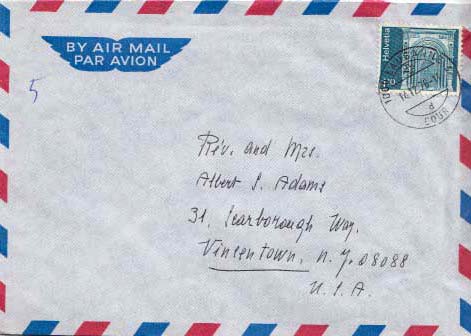 BY AIR MAIL
PAR AVION
5
Helvetia
Rev. and Mrs.
Albert S. Adams
31, Scarborough Way.
Vincentown, N.Y. 08088
U.S.A.